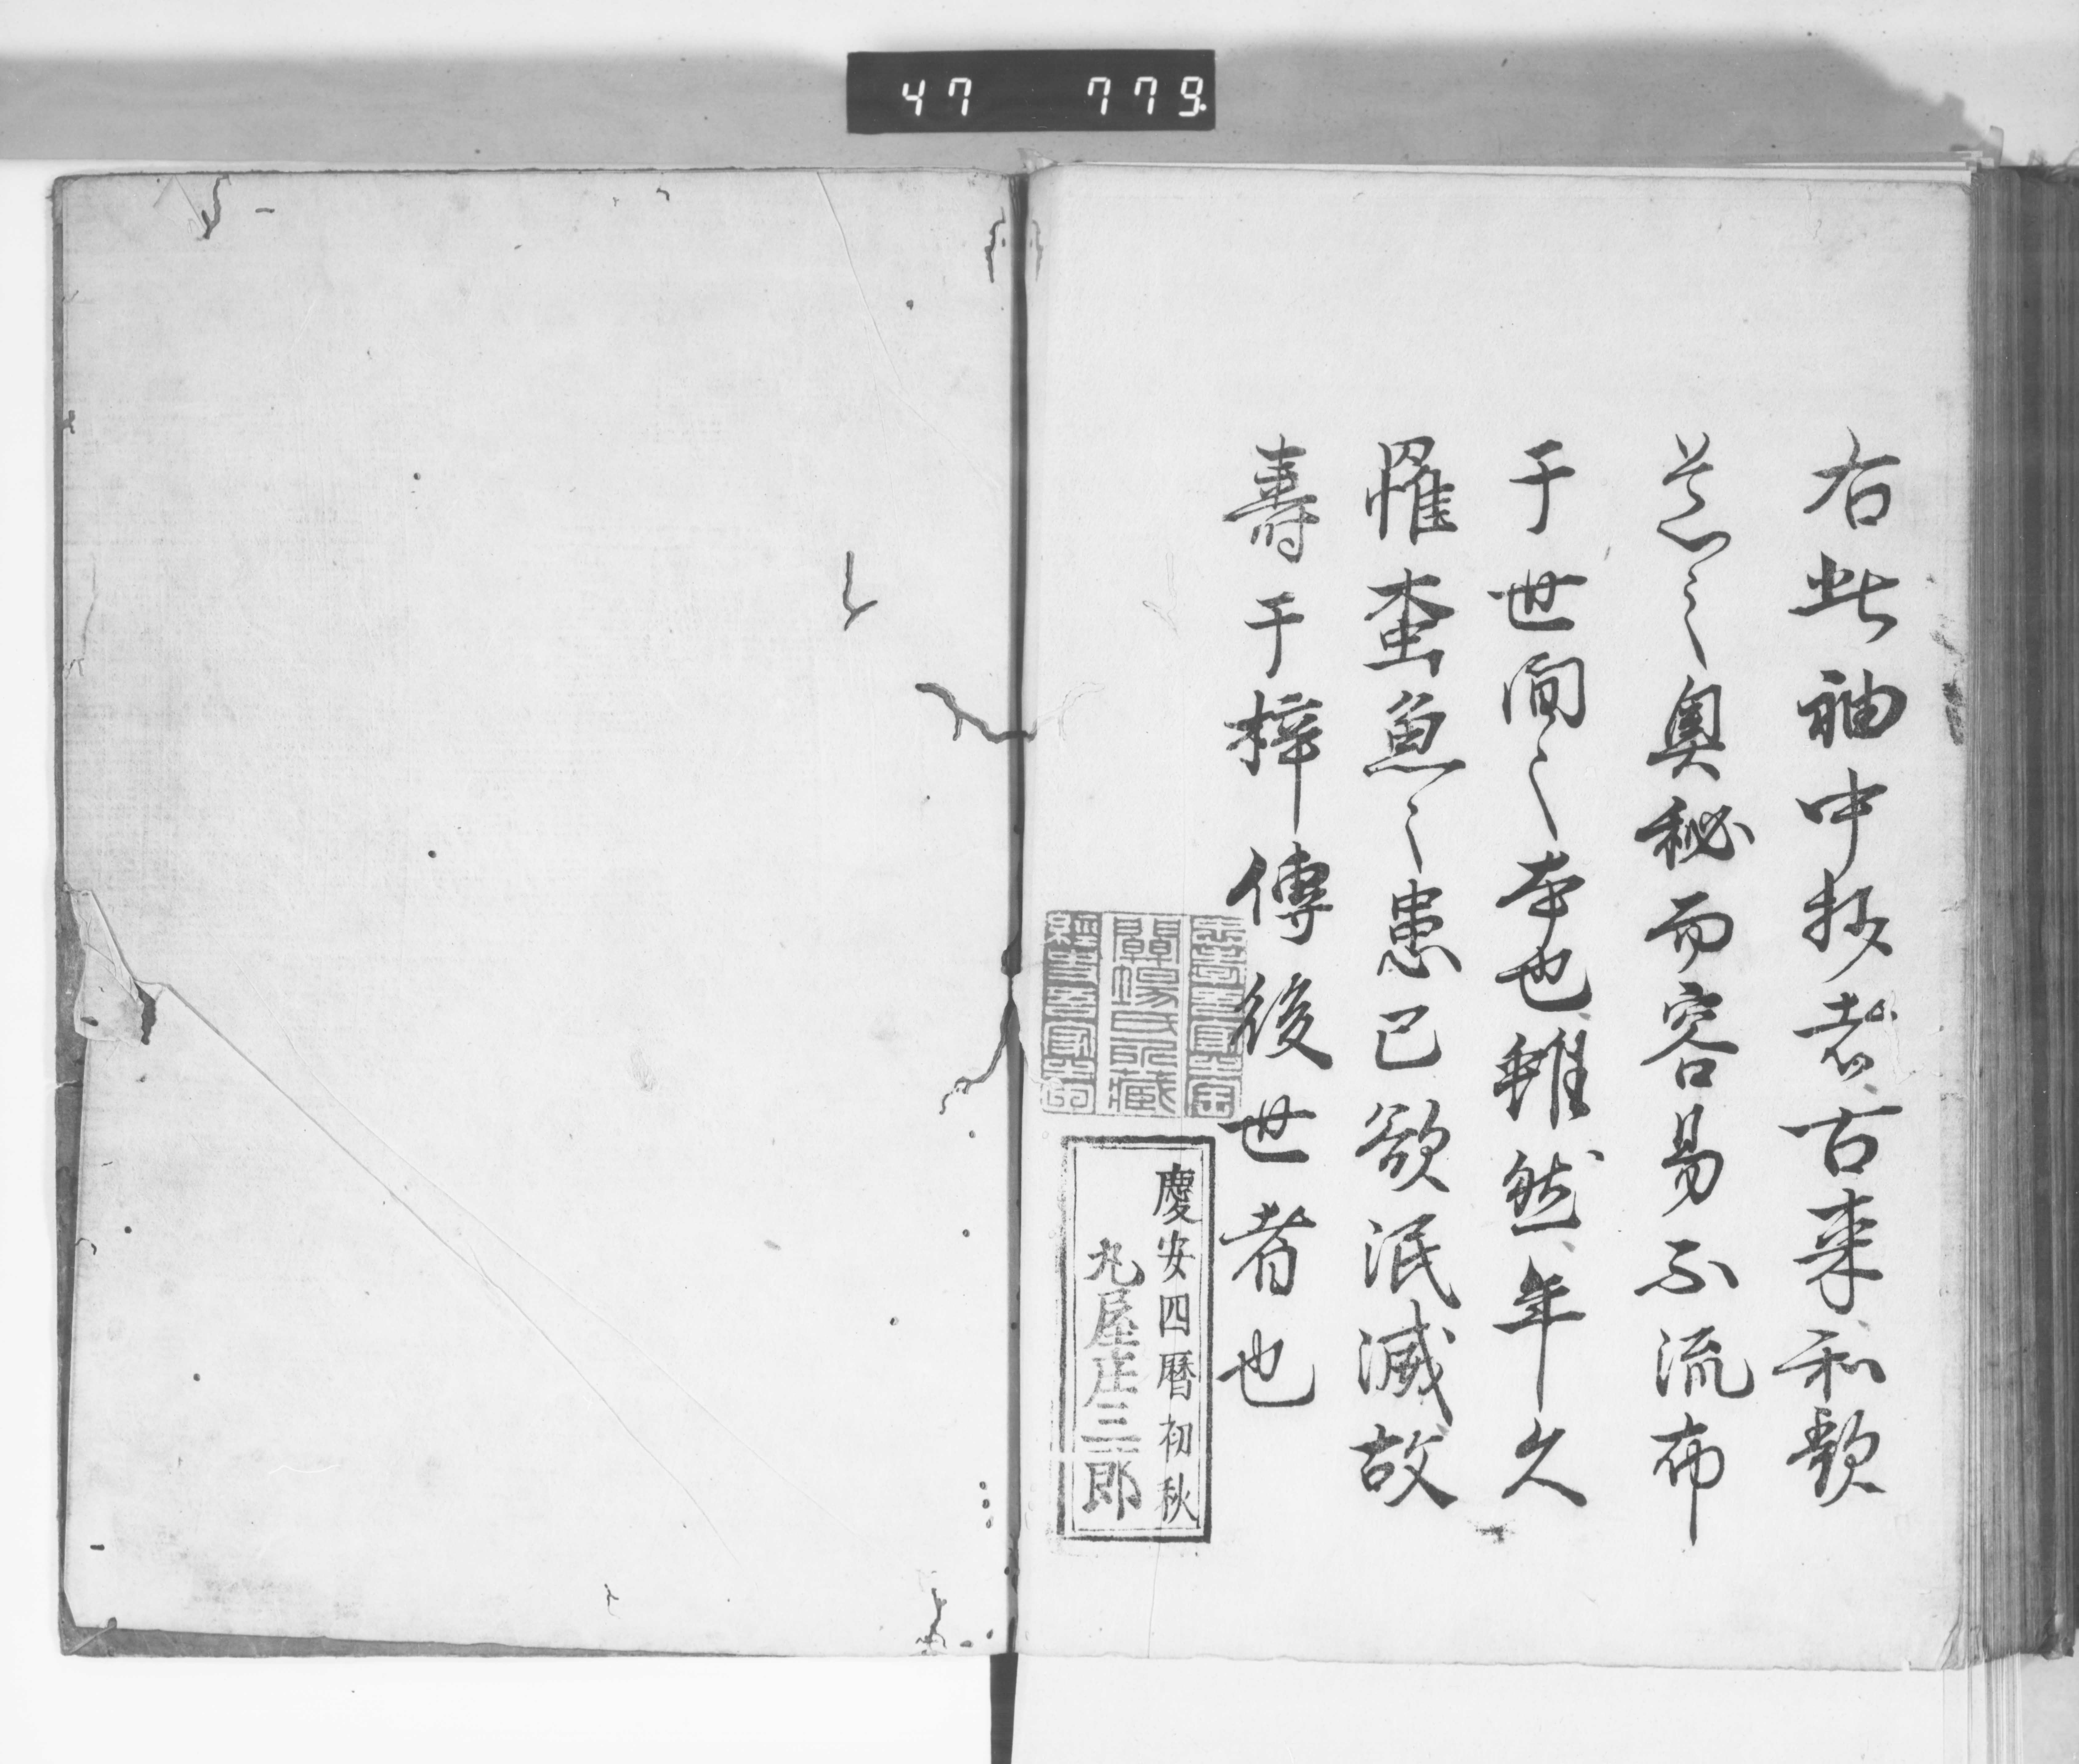 47 779
右此袖中抄者古来和歌
道之奥秘而容易不流布
于世間之本也雖然年久
罹蠧魚之患已欲泯滅故
壽于梓傳後世者也
慶安四暦初秋
丸屋庄三郎